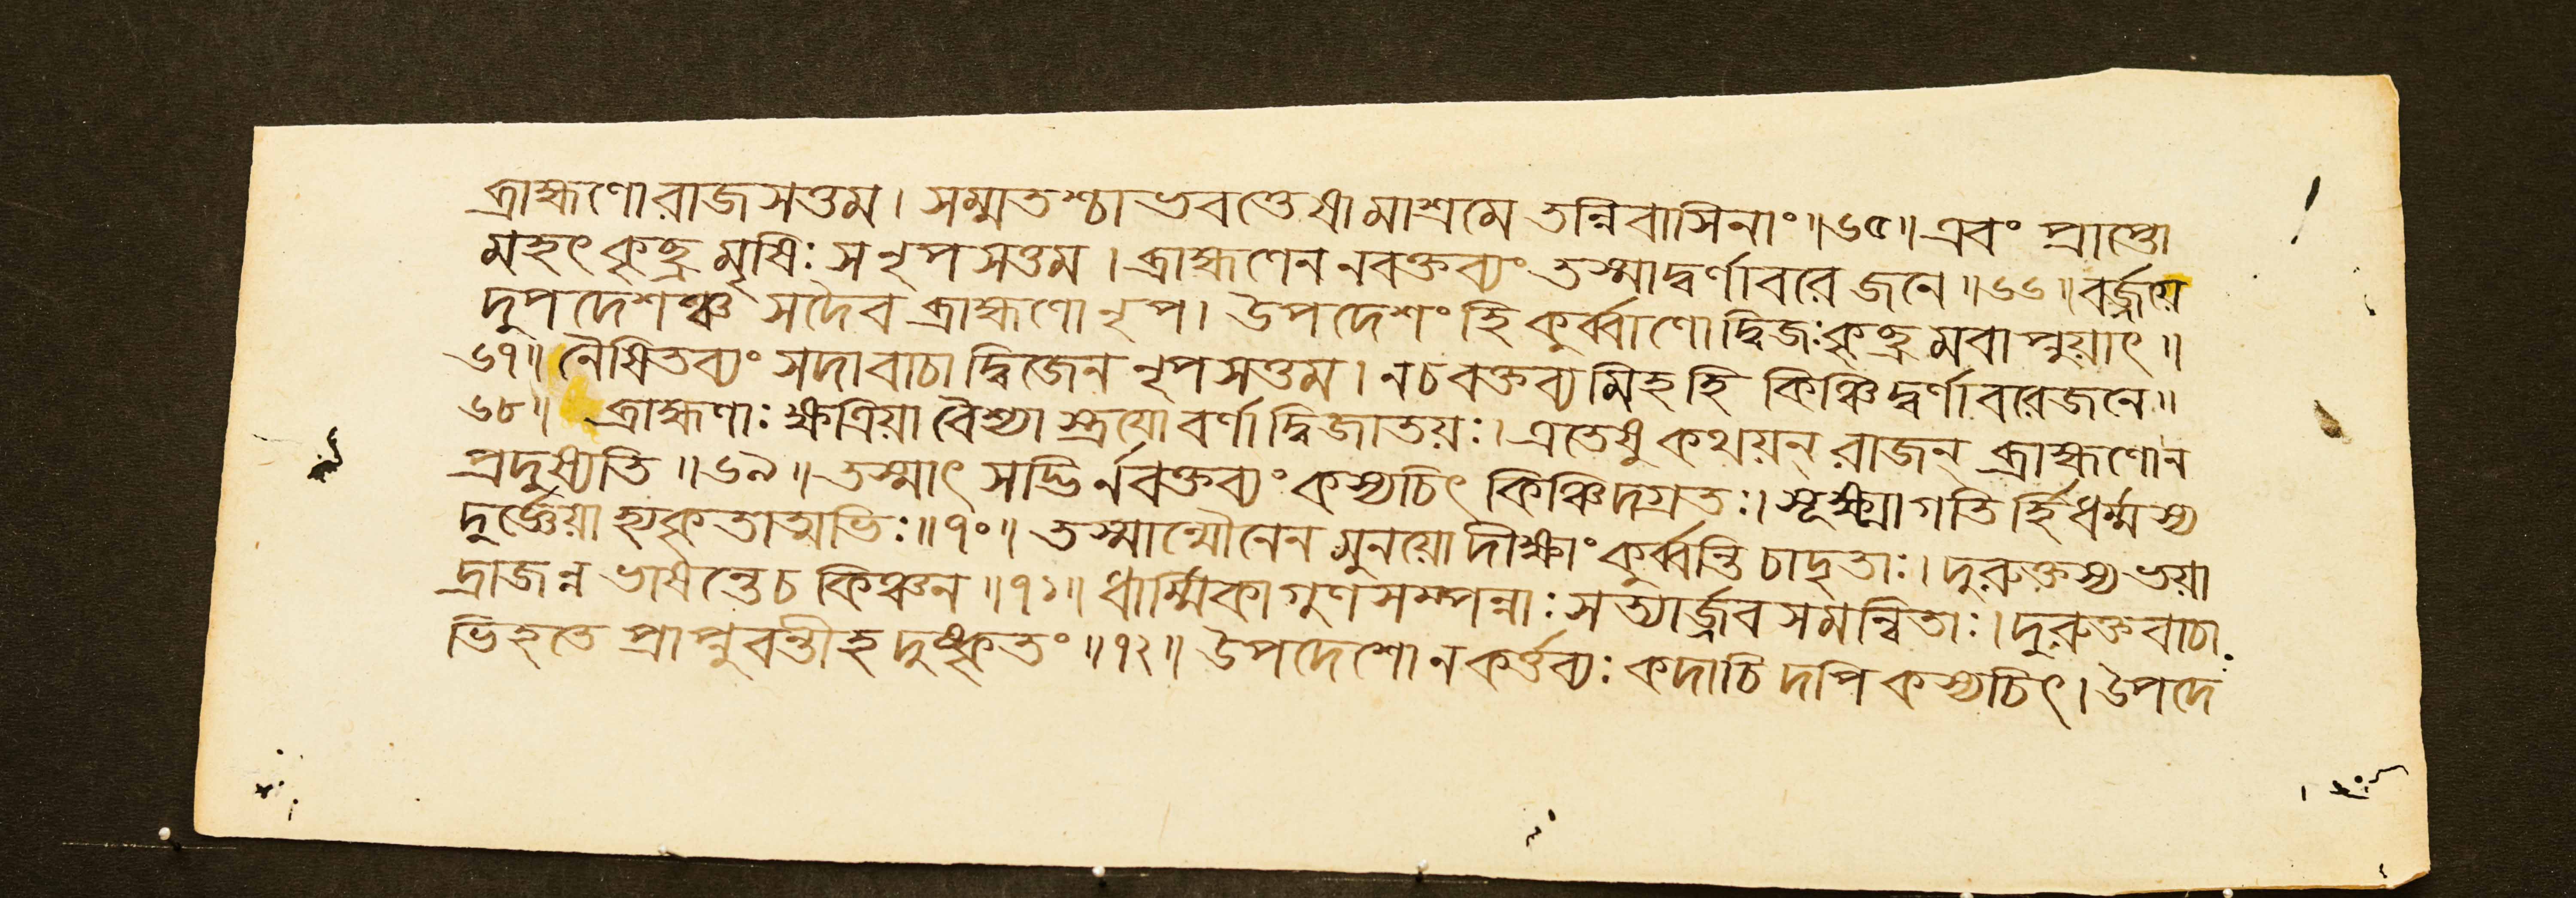 ব্রাহ্মণো রাজসত্তম। সম্মতশ্চাভবত্তেষামাশ্রমে তন্নিবাসিনাং॥৬৫॥ এবং প্রাপ্তো
মহৎকৃচ্ছ্রমৃষিঃ স নৃপসত্তম। ব্রাহ্মণেন নবক্তব্যং তস্মাদ্বর্ণাবরে জনে॥৬৬॥ বর্জ্জয়ে
দুপদেশঞ্চ সদৈব ব্রাহ্মণো নৃপ। উপদেশং হি কুর্ব্বাণো দ্বিজঃ কৃচ্ছ্রমবাপ্নুয়াৎ॥
৬৭॥ নৈষিতব্যং সদা বাচা দ্বিজেন নৃপসত্তম। নচ বক্তব্যমিহ হি কিঞ্চিদ্বর্ণাবরেজনে॥
৬৮॥ ব্রাহ্মণাঃ ক্ষত্রিয়া বৈশ্যাস্ত্রয়ো বর্ণা দ্বিজাতয়ঃ। এতেষু কথয়ন্ রাজন্ ব্রাহ্মণো ন
প্রদুষ্যতি॥৬৯॥ তস্মাৎ সদ্ভির্নবক্তব্যং কস্যচিৎ কিঞ্চিদগ্রতঃ। সূক্ষ্মাগতির্হি ধর্ম্মস্য
দুর্জ্ঞেয়া হ্যকৃতাত্মভিঃ॥৭০॥ তস্মান্মৌনেন মুনয়ো দীক্ষাং কুর্ব্বন্তি চাদৃতাঃ। দুরুক্তস্য ভয়া
দ্রাজন্ন ভাষন্তে চ কিঞ্চন॥৭১॥ ধার্ম্মিকা গুণসম্পন্নাঃ সত্যার্জ্জবসমন্বিতাঃ। দুরুক্তবাচা
ভিহতে প্রাপ্নুবন্তীহ দুষ্কৃতং॥৭২॥ উপদেশো ন কর্ত্তব্যঃ কদাচিদপি কস্যচিৎ। উপদে